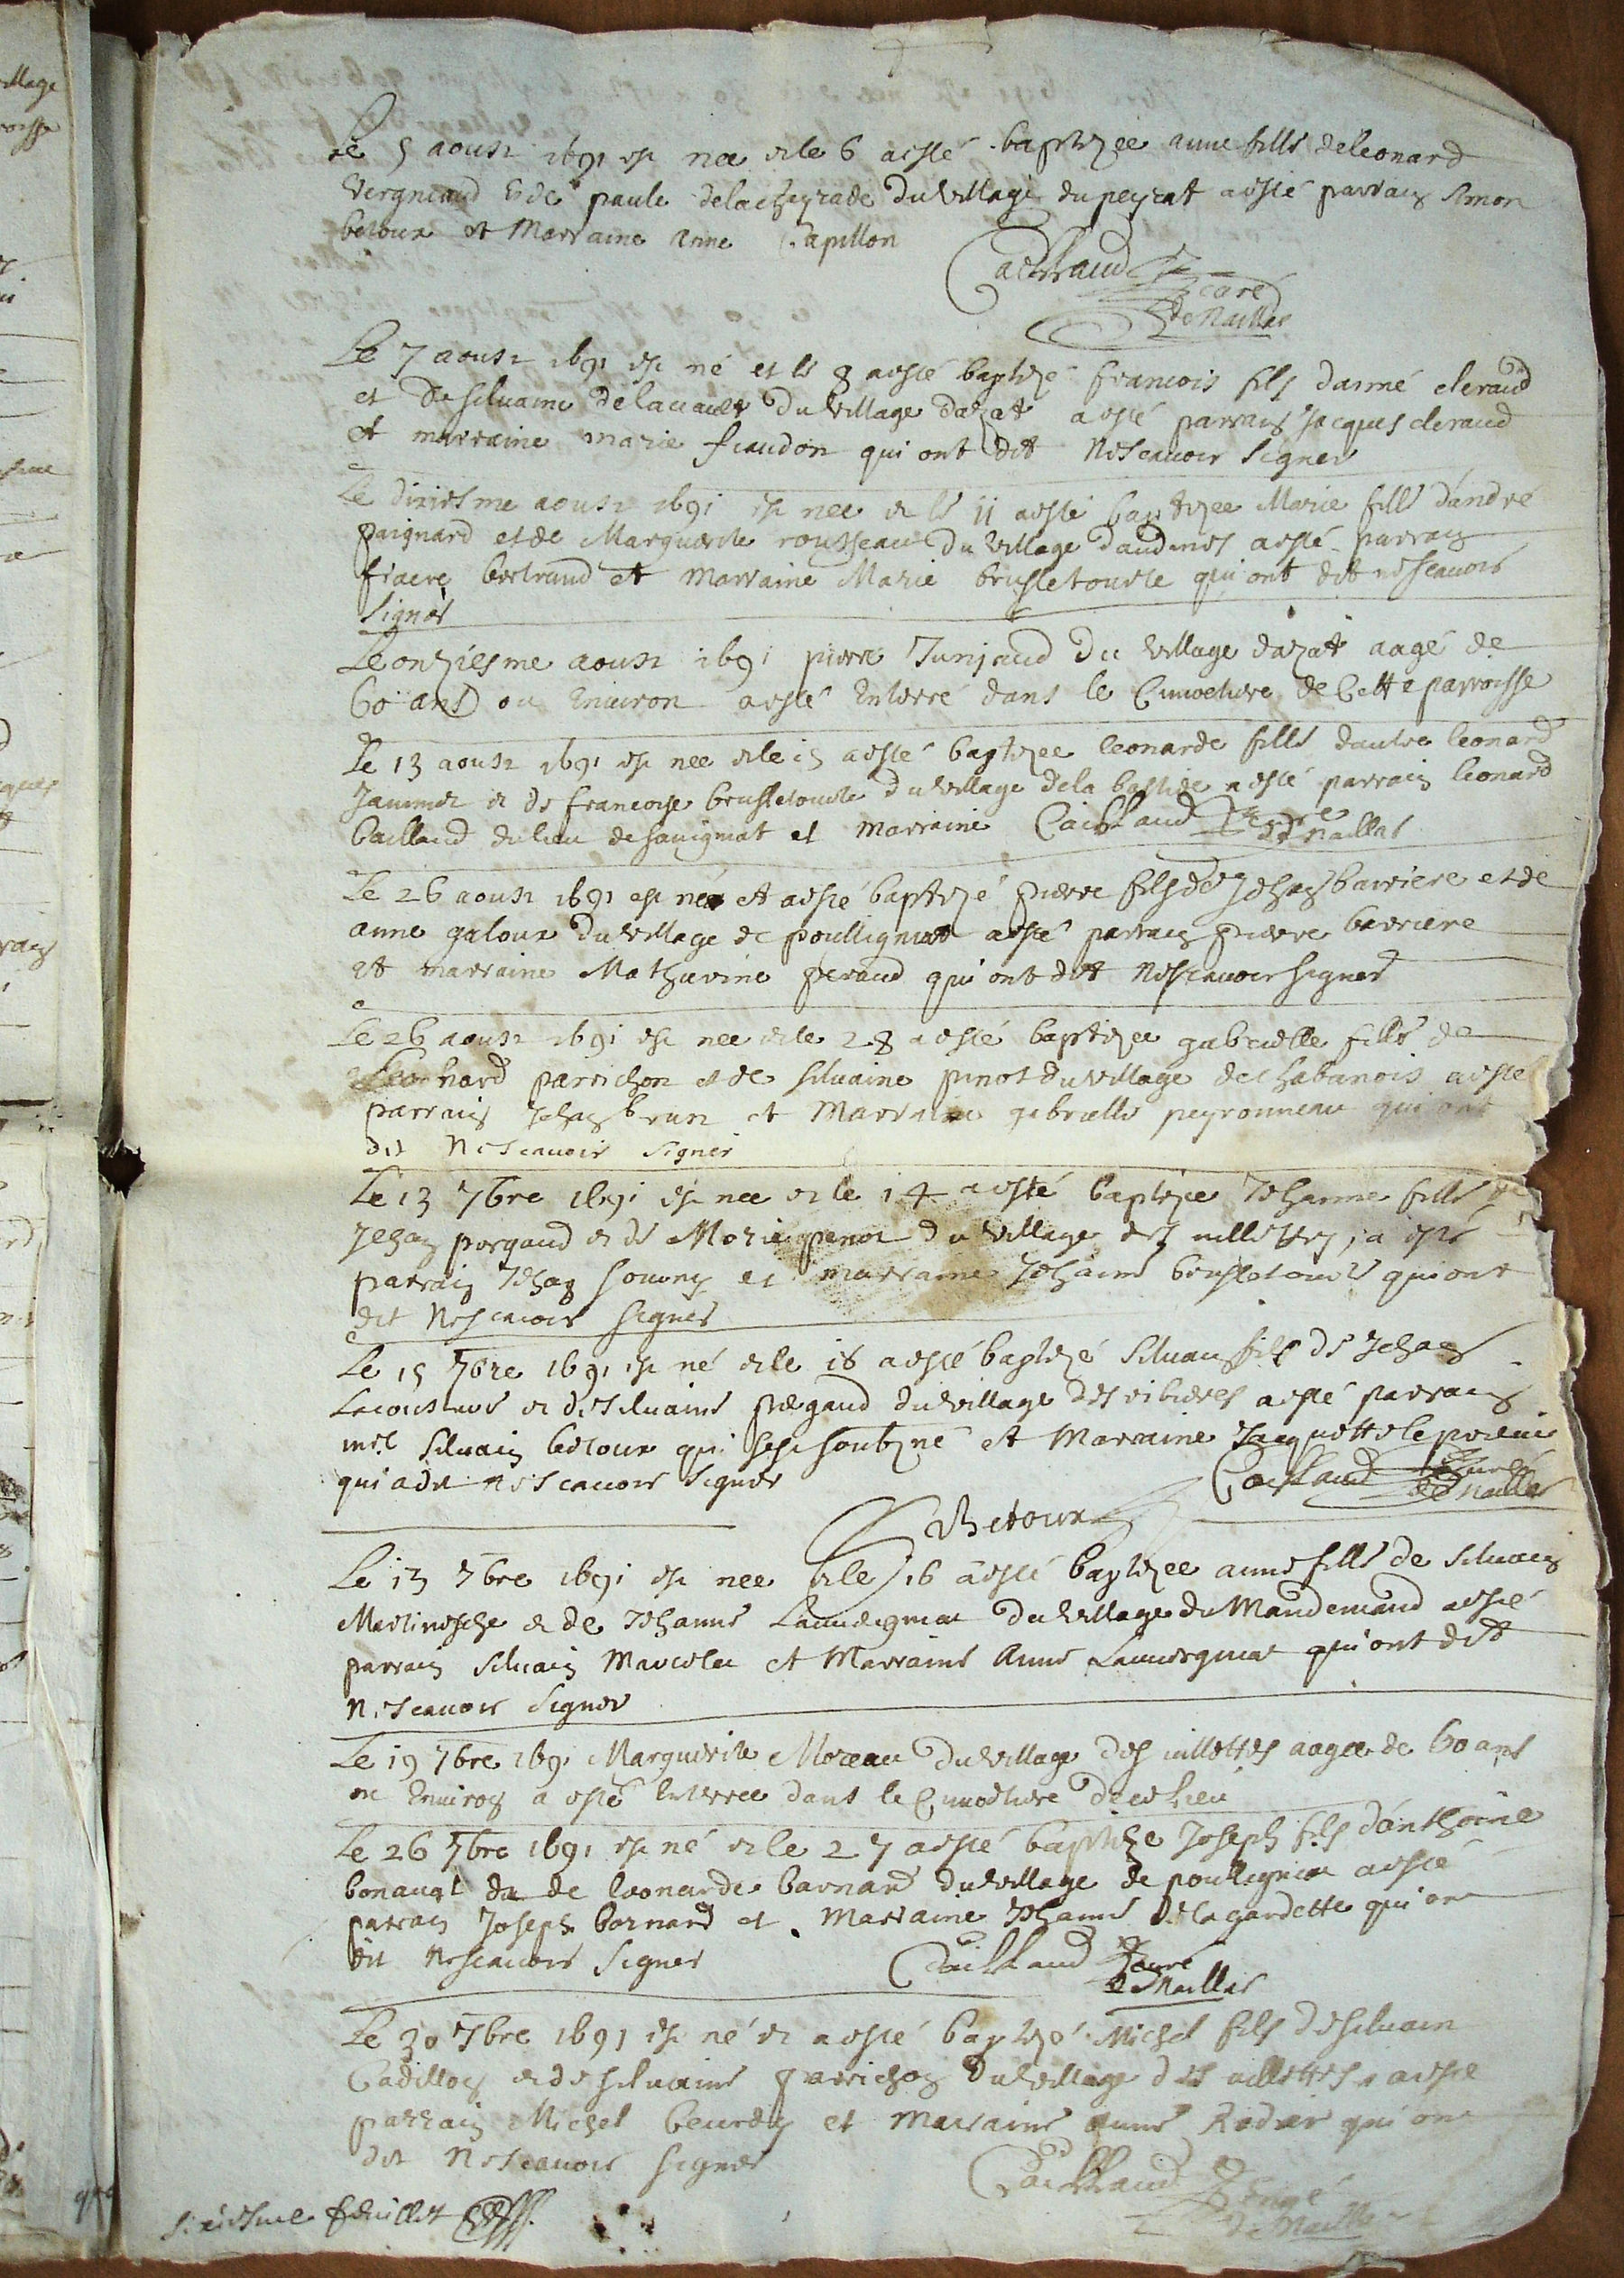 Le 5 aoust 1691 est nee et le 6 a esté baptizée anne fille de leonard
Vergneaud et de paule delacheyrade du village du peyrat a esté parrain simon
betoux et Marraine anne Papillon
Caillaud curé
de Naillat
Le 7 aoust 1691 est né et le 8 a esté baptizé francois fils daimé deraud
et de silvaine delacaux du village dazat a esté parrain Jacques deraud
et marraine marie feaudon qui ont dit ne scavoir signer
Le diziesme aoust 1691 est nee et le 11 a esté baptizee Marie fille dandré
paignard et de Marguerite rousseau du village daudenes a esté parrain
fiacre bertrand et marraine Marie brusletourte qui ont dit ne scavoir
signer
Le onziesme aoust 1691 pierre Junjaud du village dazat aagé de
60 ans ou Environ a esté Enterré dans le Cimoetiere de Cette parroisse
Le 13 aoust 1691 est nee et le 15 a esté baptizee leonarde fille dautre leonard
Jammet et de francoise brusletourte du village dela bastide a esté parrain leonard
baillaud du lieu de sauignat et marraine Caillaud curé
de Naillat
Le 26 aoust 1691 est né et a esté baptizé pierre fils de Jehan barriere et de
anne galoux du village de poullignat a esté parrain pierre barriere
et marraine Mathurine peraud qui ont dit ne scavoir signer
Le 26 aoust 1691 est nee et le 28 a esté baptizee gabrielle fille de
Leonard parrichon et de silvaine pinot du village de chabanois a esté
parrain Jehan brun et Marraine gabrielle peyronneau qui ont
dit ne scauoir signer
Le 13 7bre 1691 est nee et le 14 a esté baptizee Jehanne fille de
Jehan porgaud et de Marie penot du village des uillettes, a esté
parrain Jehan souuny et marraine Jehanne brusletourte qui ont
dit ne scauoir signer
Le 15 7bre 1691 est né et le 16 a esté baptizé silvain fils de Jehan
Lacousture et de silvaine pregaud du village des ribieres a esté parrain
me silvain betoux qui sest soubzné et Marraine Jacquette leprieur
qui a dit ne scauoir signer Caillaud curé
de Naillat
SBetoux
Le 13 7bre 1691 est nee et le 16 a esté baptizee anne fille de silvain
Martinesche et de Jehanne Lauuergnat du village du Mandemaud a esté
parrain silvain Marcelet et Marraine anne Lauuergnat qui ont dit
ne scauoir signer
Le 19 7bre 1691 Marguerite Moreau du village des uillettes aagee de 60 ans
ou Enuiron a esté Enterree dans le Cimoetiere de ce lieu
Le 26 7bre 1691 est né et le 27 a esté baptize Joseph fils danthoine
bonaugt de leonarde barnard du village de poullignat a esté
parrain Joseph bornard et Marraine Jehanne delagardette qui ont
dit ne scauoir signer Caillaud curé
de Naillat
Le 30 7bre 1691 est né et a esté baptizé Michel fils de siluain
Cadillon et de siluaine parrichon du village des uillettes a esté
parrain Michel beurdy et marraine anne Rodier qui ont
dit ne scauoir signer
Caillaud curé
de Naillat
sixiesme feuillet